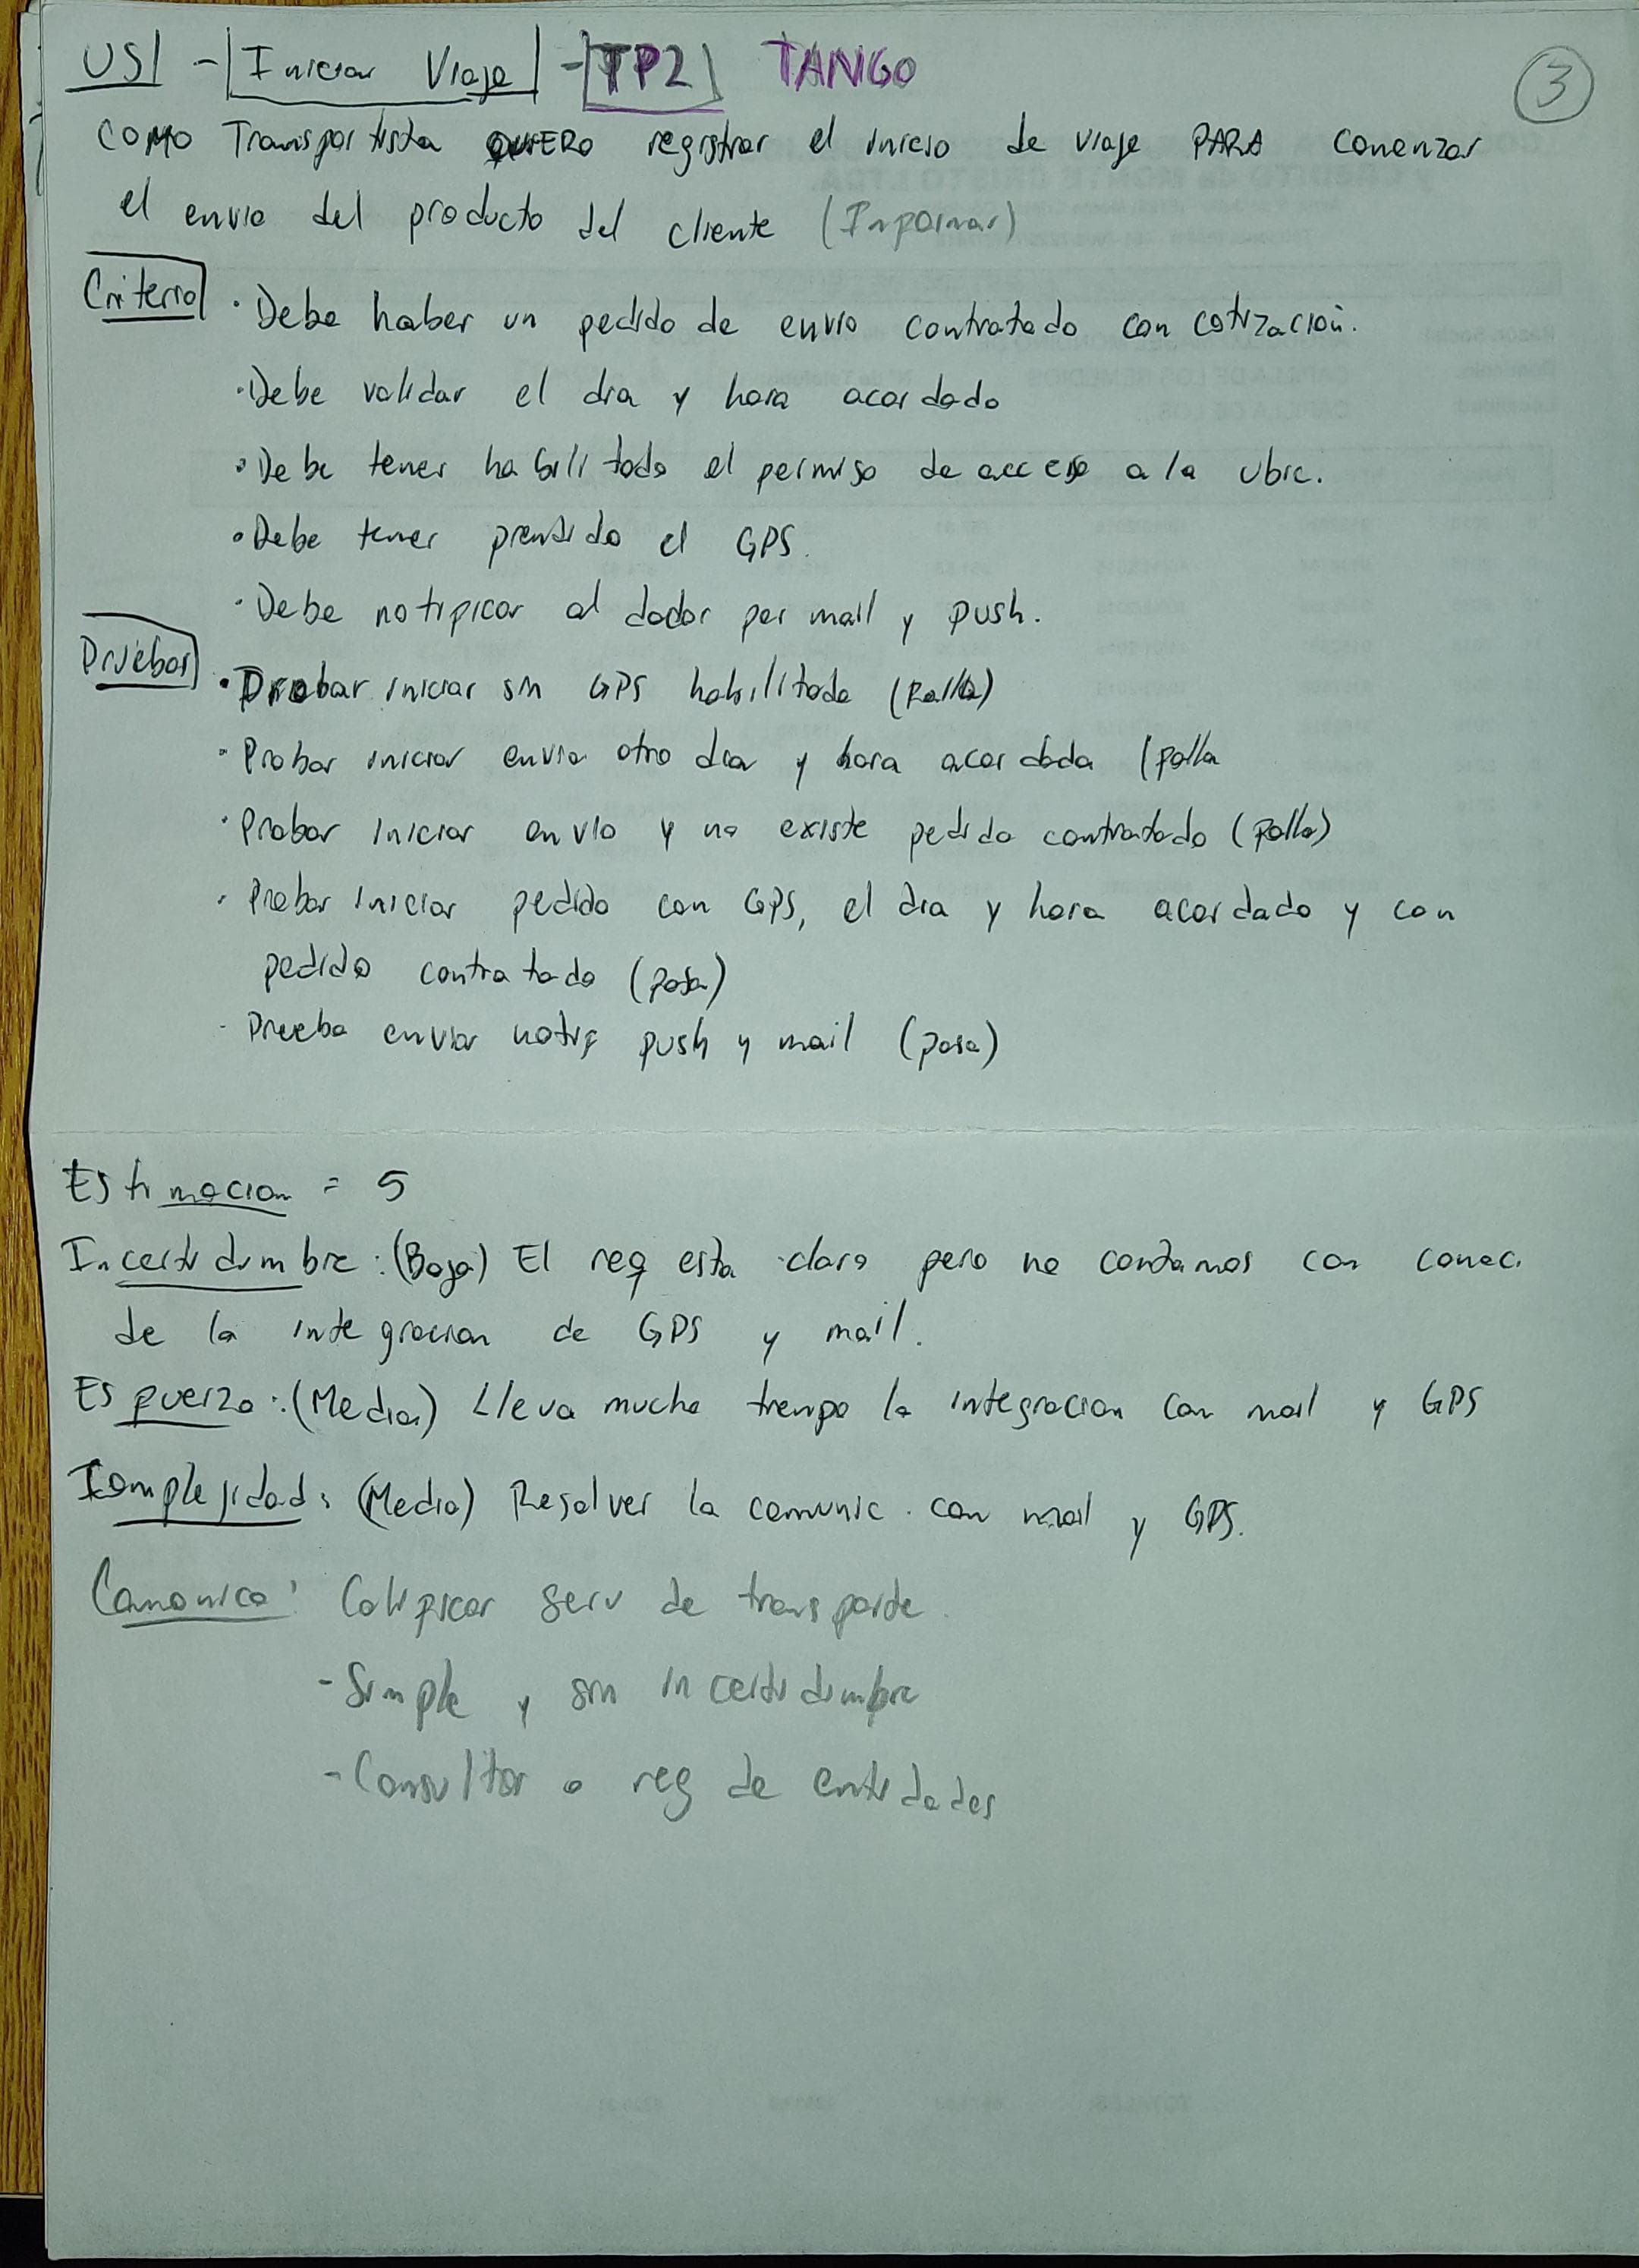 US1 - Iniciar Viaje - TP2 TANGO 3
COMO Transportista QUIERO registrar el inicio de viaje PARA comenzar
el envio del producto del cliente (Informar)
Criterio · Debe haber un pedido de envio contratado con cotización.
· Debe validar el dia y hora acordado
· Debe tener habilitado el permiso de acceso a la ubic.
· Debe tener prendido el GPS.
· Debe notificar al dador por mail y push.
Pruebas · Probar iniciar sin GPS habilitado (Falla)
· Probar iniciar envio otro dia y hora acordada (falla
· Probar iniciar envio y no existe pedido contratado (falla)
· Probar iniciar pedido con GPS, el dia y hora acordado y con
pedido contratado (pasa)
· Prueba enviar notif push y mail (pasa)
Estimacion = 5
Incertidumbre: (Baja) El req esta claro pero no contamos con conoc.
de la integracion de GPS y mail.
Esfuerzo: (Media) Lleva mucho tiempo la integracion con mail y GPS
Complejidad: (Media) Resolver la comunic. con mail y GPS.
Canonica: Calificar serv de transporte.
- Simple y sin incertidumbre
- Consultar o reg de entidades